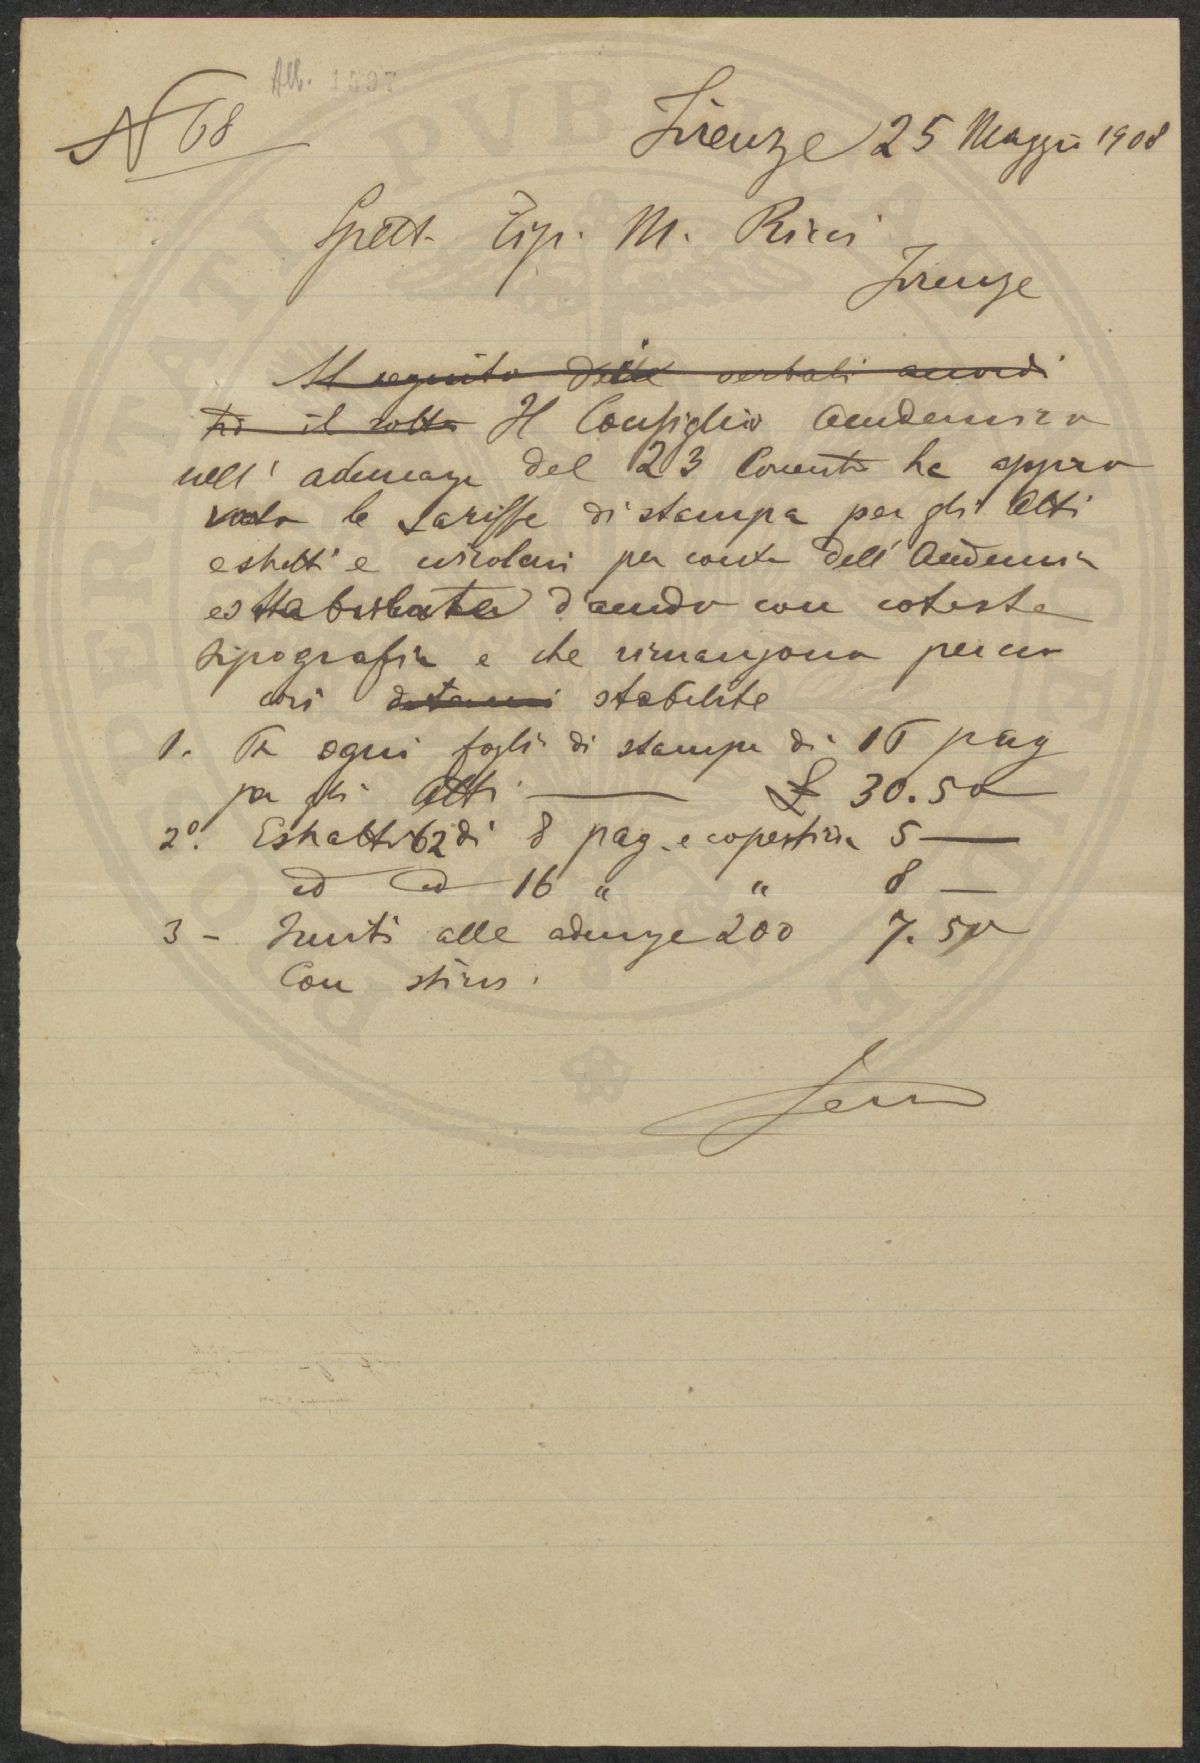 N 68
Firenze 25 Maggio 1908
Spett. Tip. M. Ricci
Firenze
A seguito delle verbali accordi
tra il sotto Il Consiglio Accademico
nell' adunanza del 23 Corrente ha appro
vato le tariffe di stampa per gli Atti
estratti e circolari per conto dell' Accademia
e stabilite d'accordo con cotesta
tipografia e che rimangono perciò
così stabilite
1. Per ogni foglio di stampa di 16 pag
per gli Atti — £ 30.50
2º. Estratti 62 di 8 pag. e copertina 5 —
id id 16 " " 8 —
3 - Inviti alle adunanze 200 7.50
Con stima.